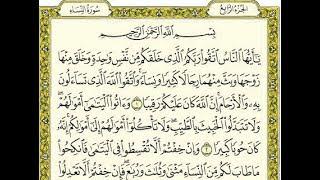 الجزء الرابع
سورة النساء
بِسْمِ اللَّهِ الرَّحْمَٰنِ الرَّحِيمِ
يَا أَيُّهَا النَّاسُ اتَّقُوا رَبَّكُمُ الَّذِي خَلَقَكُم مِّن نَّفْسٍ وَاحِدَةٍ وَخَلَقَ مِنْهَا
زَوْجَهَا وَبَثَّ مِنْهُمَا رِجَالًا كَثِيرًا وَنِسَاءً وَاتَّقُوا اللَّهَ الَّذِي تَسَاءَلُونَ
بِهِ وَالْأَرْحَامَ إِنَّ اللَّهَ كَانَ عَلَيْكُمْ رَقِيبًا ١ وَآتُوا الْيَتَامَىٰ أَمْوَالَهُمْ
وَلَا تَتَبَدَّلُوا الْخَبِيثَ بِالطَّيِّبِ وَلَا تَأْكُلُوا أَمْوَالَهُمْ إِلَىٰ أَمْوَالِكُمْ إِنَّهُ
كَانَ حُوبًا كَبِيرًا ٢ وَإِنْ خِفْتُمْ أَلَّا تُقْسِطُوا فِي الْيَتَامَىٰ فَانكِحُوا
مَا طَابَ لَكُم مِّنَ النِّسَاءِ مَثْنَىٰ وَثُلَاثَ وَرُبَاعَ فَإِنْ خِفْتُمْ أَلَّا تَعْدِلُوا